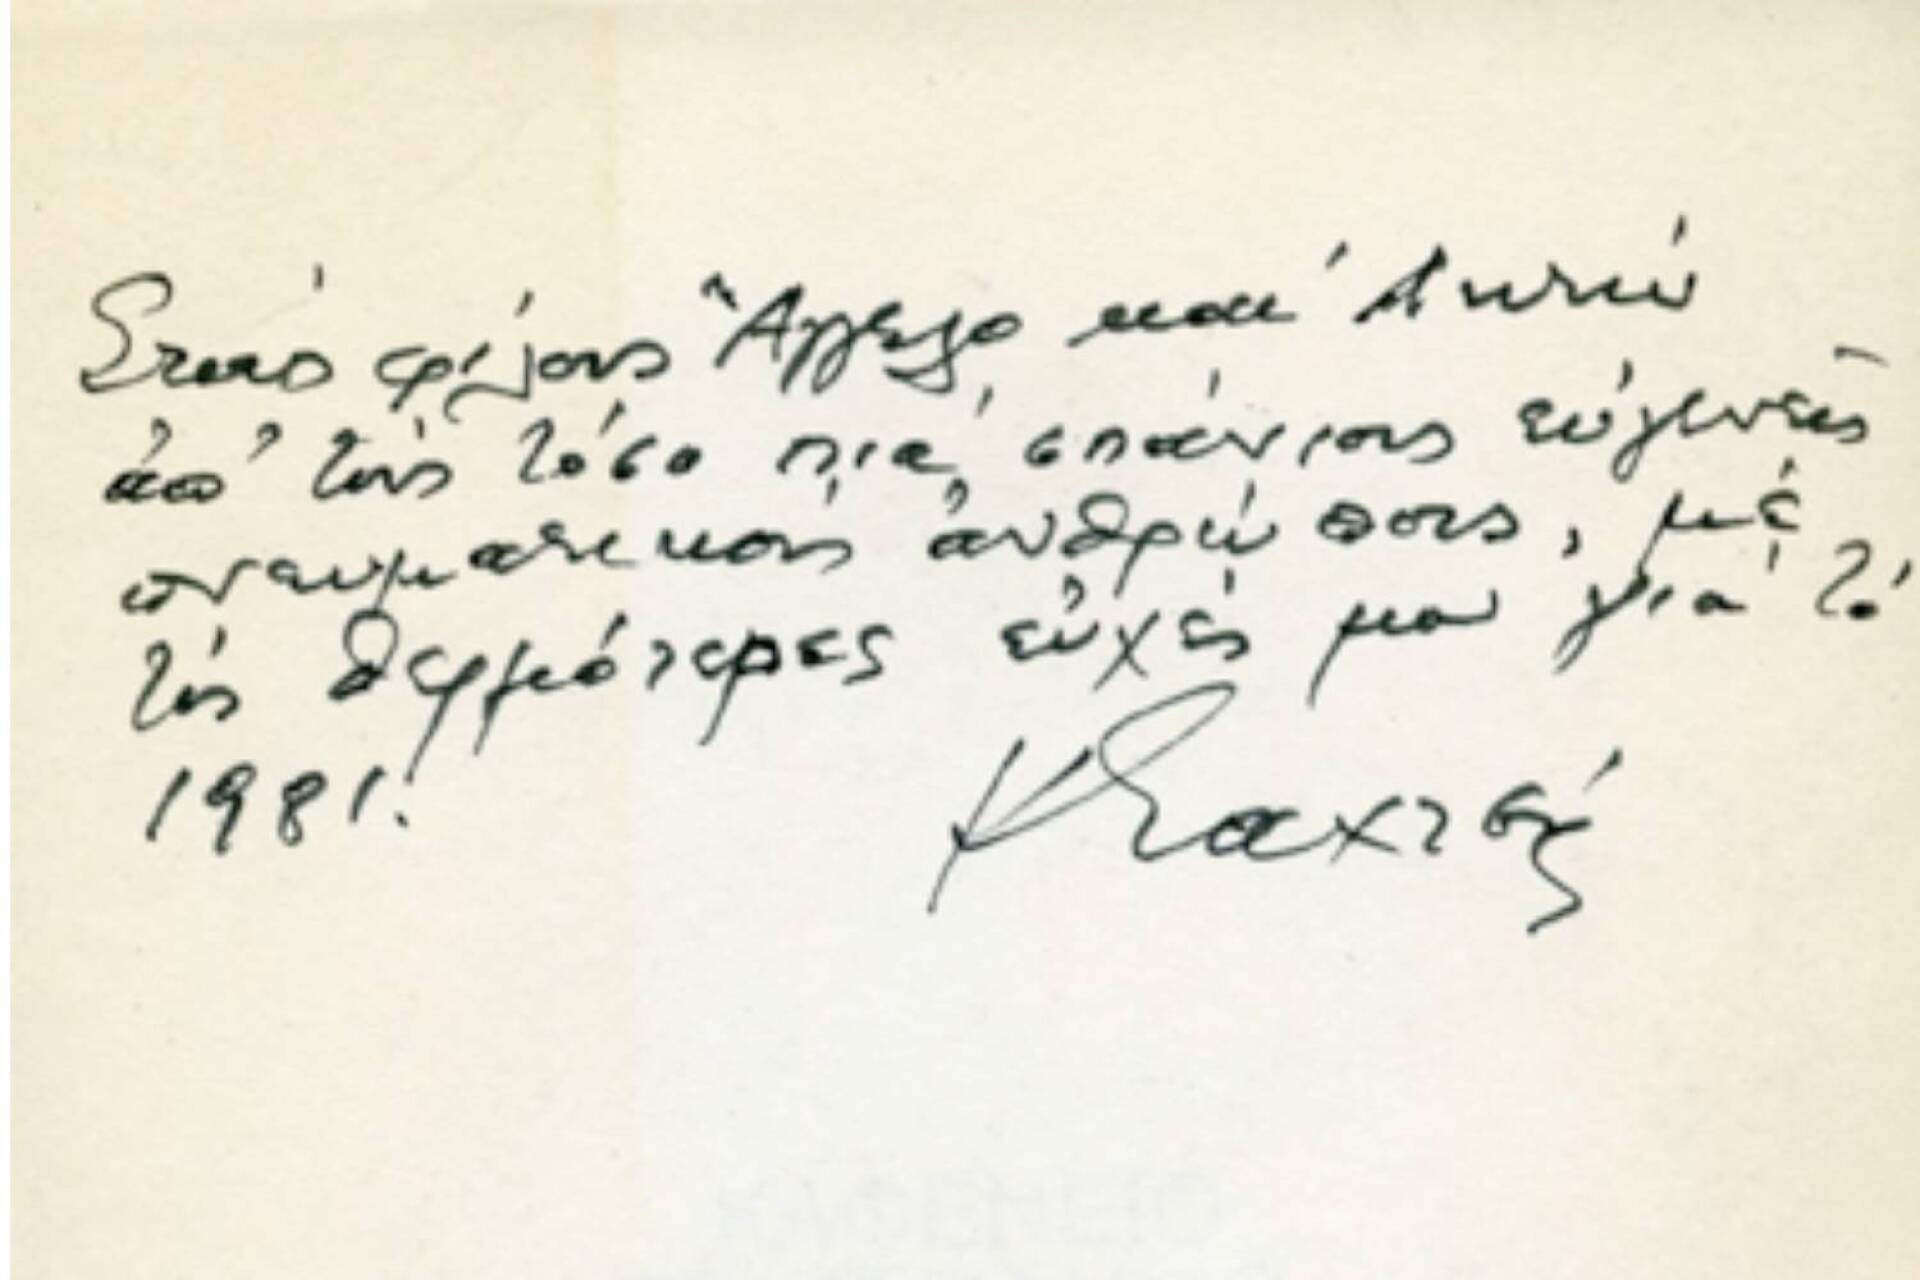 Στούς φίλους Ἄγγελο καί Λητώ
ἀπό τούς τόσο πιά σπάνιους εὐγενεῖς
πνευματικούς ἀνθρώπους, μέ
τίς θερμότερες εὐχές μου γιά τό
1981.
Κ Ταχτσή